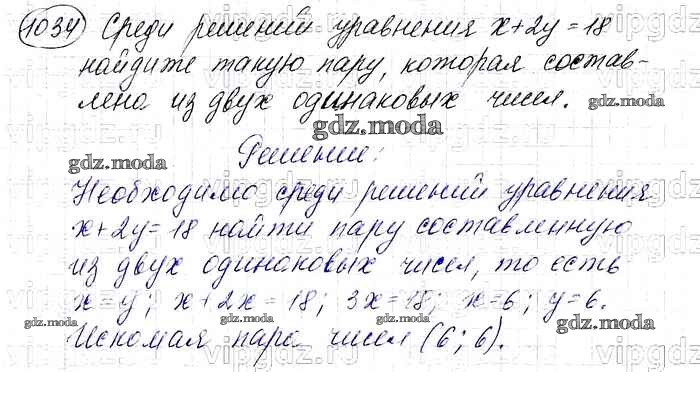 1034 Среди решений уравнения x+2y=18
найдите такую пару, которая состав-
лена из двух одинаковых чисел.
gdz.moda
gdz.moda
Решение:
gdz.moda
Необходимо среди решений уравнения
x+2y=18 найти пару составленную
из двух одинаковых чисел, то есть
x=y; x+2x=18; 3x=18; x=6; y=6.
gdz.moda
gdz.moda
gdz.moda
Искомая пара чисел (6; 6).